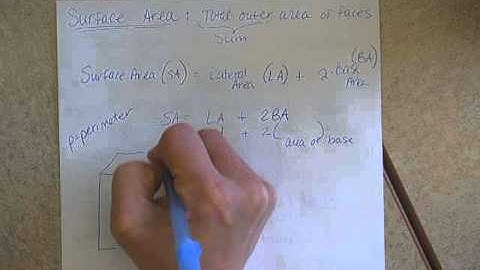 Surface Area: Total outer area of faces
Sum
Surface Area (SA) = Lateral Area (LA) + 2·Base Area (BA)
p=perimeter
SA = LA + 2BA
+ 2( area of base )